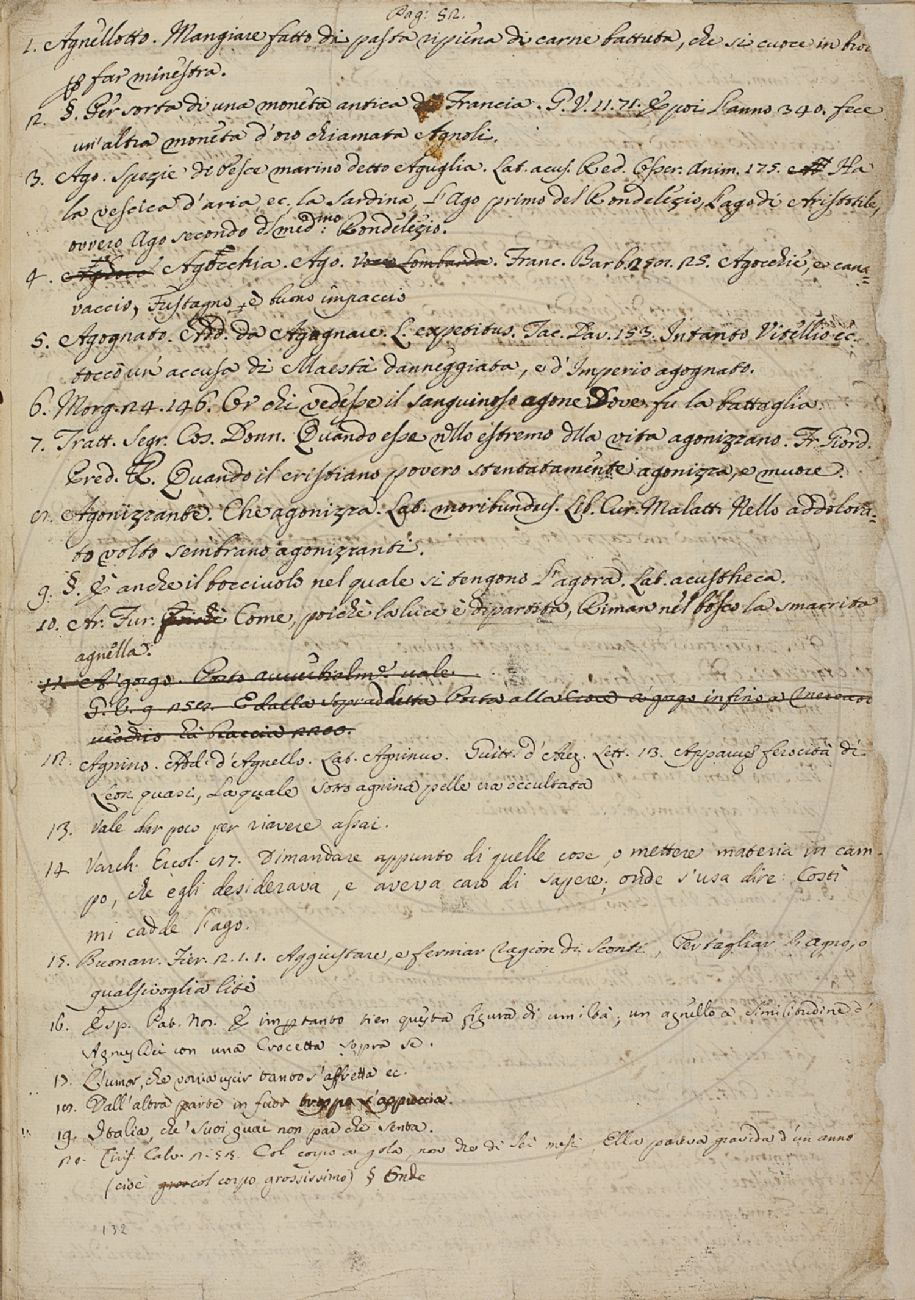 Pag. 52.
1. Agnellotto. Mangiare fatto di pasta ripiena di carne battuta, che si cuoce in bro
p far minestra.
2. §. Per sorta di una moneta antica di Francia. G. V. 11. 71. E poi l'anno 340. fece
un'altra moneta d'oro chiamata Agnoli.
3. Ago. Spezie di pesce marino detto Aguglia. Lat. acus. Red. Osser. Anim. 175. Ha
la vescica d'aria ec. la Sardina, l'Ago primo del Rondelezio, l'ago di Aristotile,
ovvero Ago secondo d medmo: Rondelezio.
4. Agocchia. Ago. Voce Lombarda. Franc. Barb. 257. 25. Agocchie, e cana=
vaccio, Fustagno, è buono impaccio
5. Agognato. Add. da Agognare. L. expetitus. Tac. Dav. 153. Intanto Vitellio ec.
toccò un'accusa di Maestà danneggiata, e d'Imperio agognato.
6. Morg. 24. 146. Or chi vedesse il sanguinoso agone Dove fu la battaglia
7. Tratt. Segr. Cos. Donn. Quando esse nello estremo dlla vita agonizzano. Fr. Giord.
Pred. R. Quando il cristiano povero stentatamente agonizza, e muore.
8. Agonizzante. Che agonizza. Lat. moribundus. Lib. Cur. Malatt. Nello addolora=
to volto sembrano agonizzanti.
9. §. E' anche il bocciuolo nel quale si tengono l'agora. Lat. acustheca.
10. Ar. Fur. Come, poichè la luce è dipartita, Riman nel bosco la smarrita
agnella.
11. A' gorgo. Posto avverbialm.e vale
G. V. 9. 258. E dalla sopraddetta Porta alla Croce a gogo infino a Mercato
vecchio ha braccia 2200.
12. Agnino. Add. d'Agnello. Lat. Agninus. Guitt. d'Arez. Lett. 13. Apparve ferocità di
Leon quasi, la quale sotto agnina pelle era occultata
13. Vale dar poco per riavere assai.
14. Varch. Ercol. 97. Dimandare appunto di quelle cose, o mettere materia in cam-
po, che egli desiderava, e aveva caro di sapere; onde s'usa dire: Costì
mi cadde l'ago.
15. Buonarr. Fier. 2. 1. 1. Aggiustare, e fermar ragion di sconti, Per tagliar li agno, o
qualsivoglia lite
16. Esp. Pat. Nos. E imptanto tien questa figura di umiltà; un agnello a similitudine d'
Agnus Dei con una Crocetta sopra se.
17. L'umor, che vorria uscir tanto s'affretta ec.
18. Dall'altra parte in fuor troppo l'appuccia.
19. Italia, che' suoi guai non par che senta.
20. Col corpo a gola, non che di sei mesi, Ella pareva gravida d'un anno
(cioè col corpo grossissimo) § Onde
132